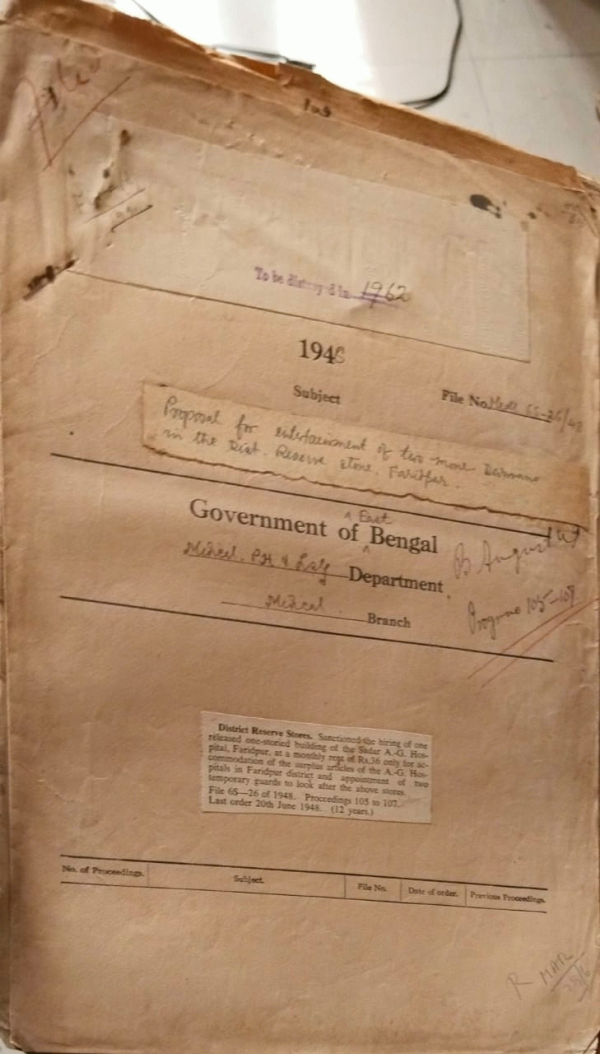 To be distroyed in 1962
1948
Subject
File No. Medl. 65-26/48
Proposal for entertainment of two more Darwans
in the Dist. Reserve store, Faridpur.
East
Government of Bengal
Medical, P.H. & L.S.G. Department,
Medical Branch
B August
Progs. nos 105-107
District Reserve Stores. Sanctioned the hiring of one
released one-storied building of the Sadar A.-G. Hos-
pital, Faridpur, at a monthly rent of Rs.36 only for ac-
commodation of the surplus articles of the A.-G. Hos-
pitals in Faridpur district and appointment of two
temporary guards to look after the above stores.
File 65—26 of 1948. Proceedings 105 to 107.
Last order 20th June 1948. (12 years.)
No. of Proceedings. Subject. File No. Date of order. Previous Proceedings.
R